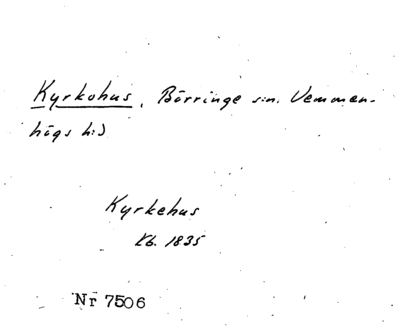 Kyrkohus, Börringe sn. Vemmen-
högs hd
Kyrkehus
Kb. 1835
Nr 7506